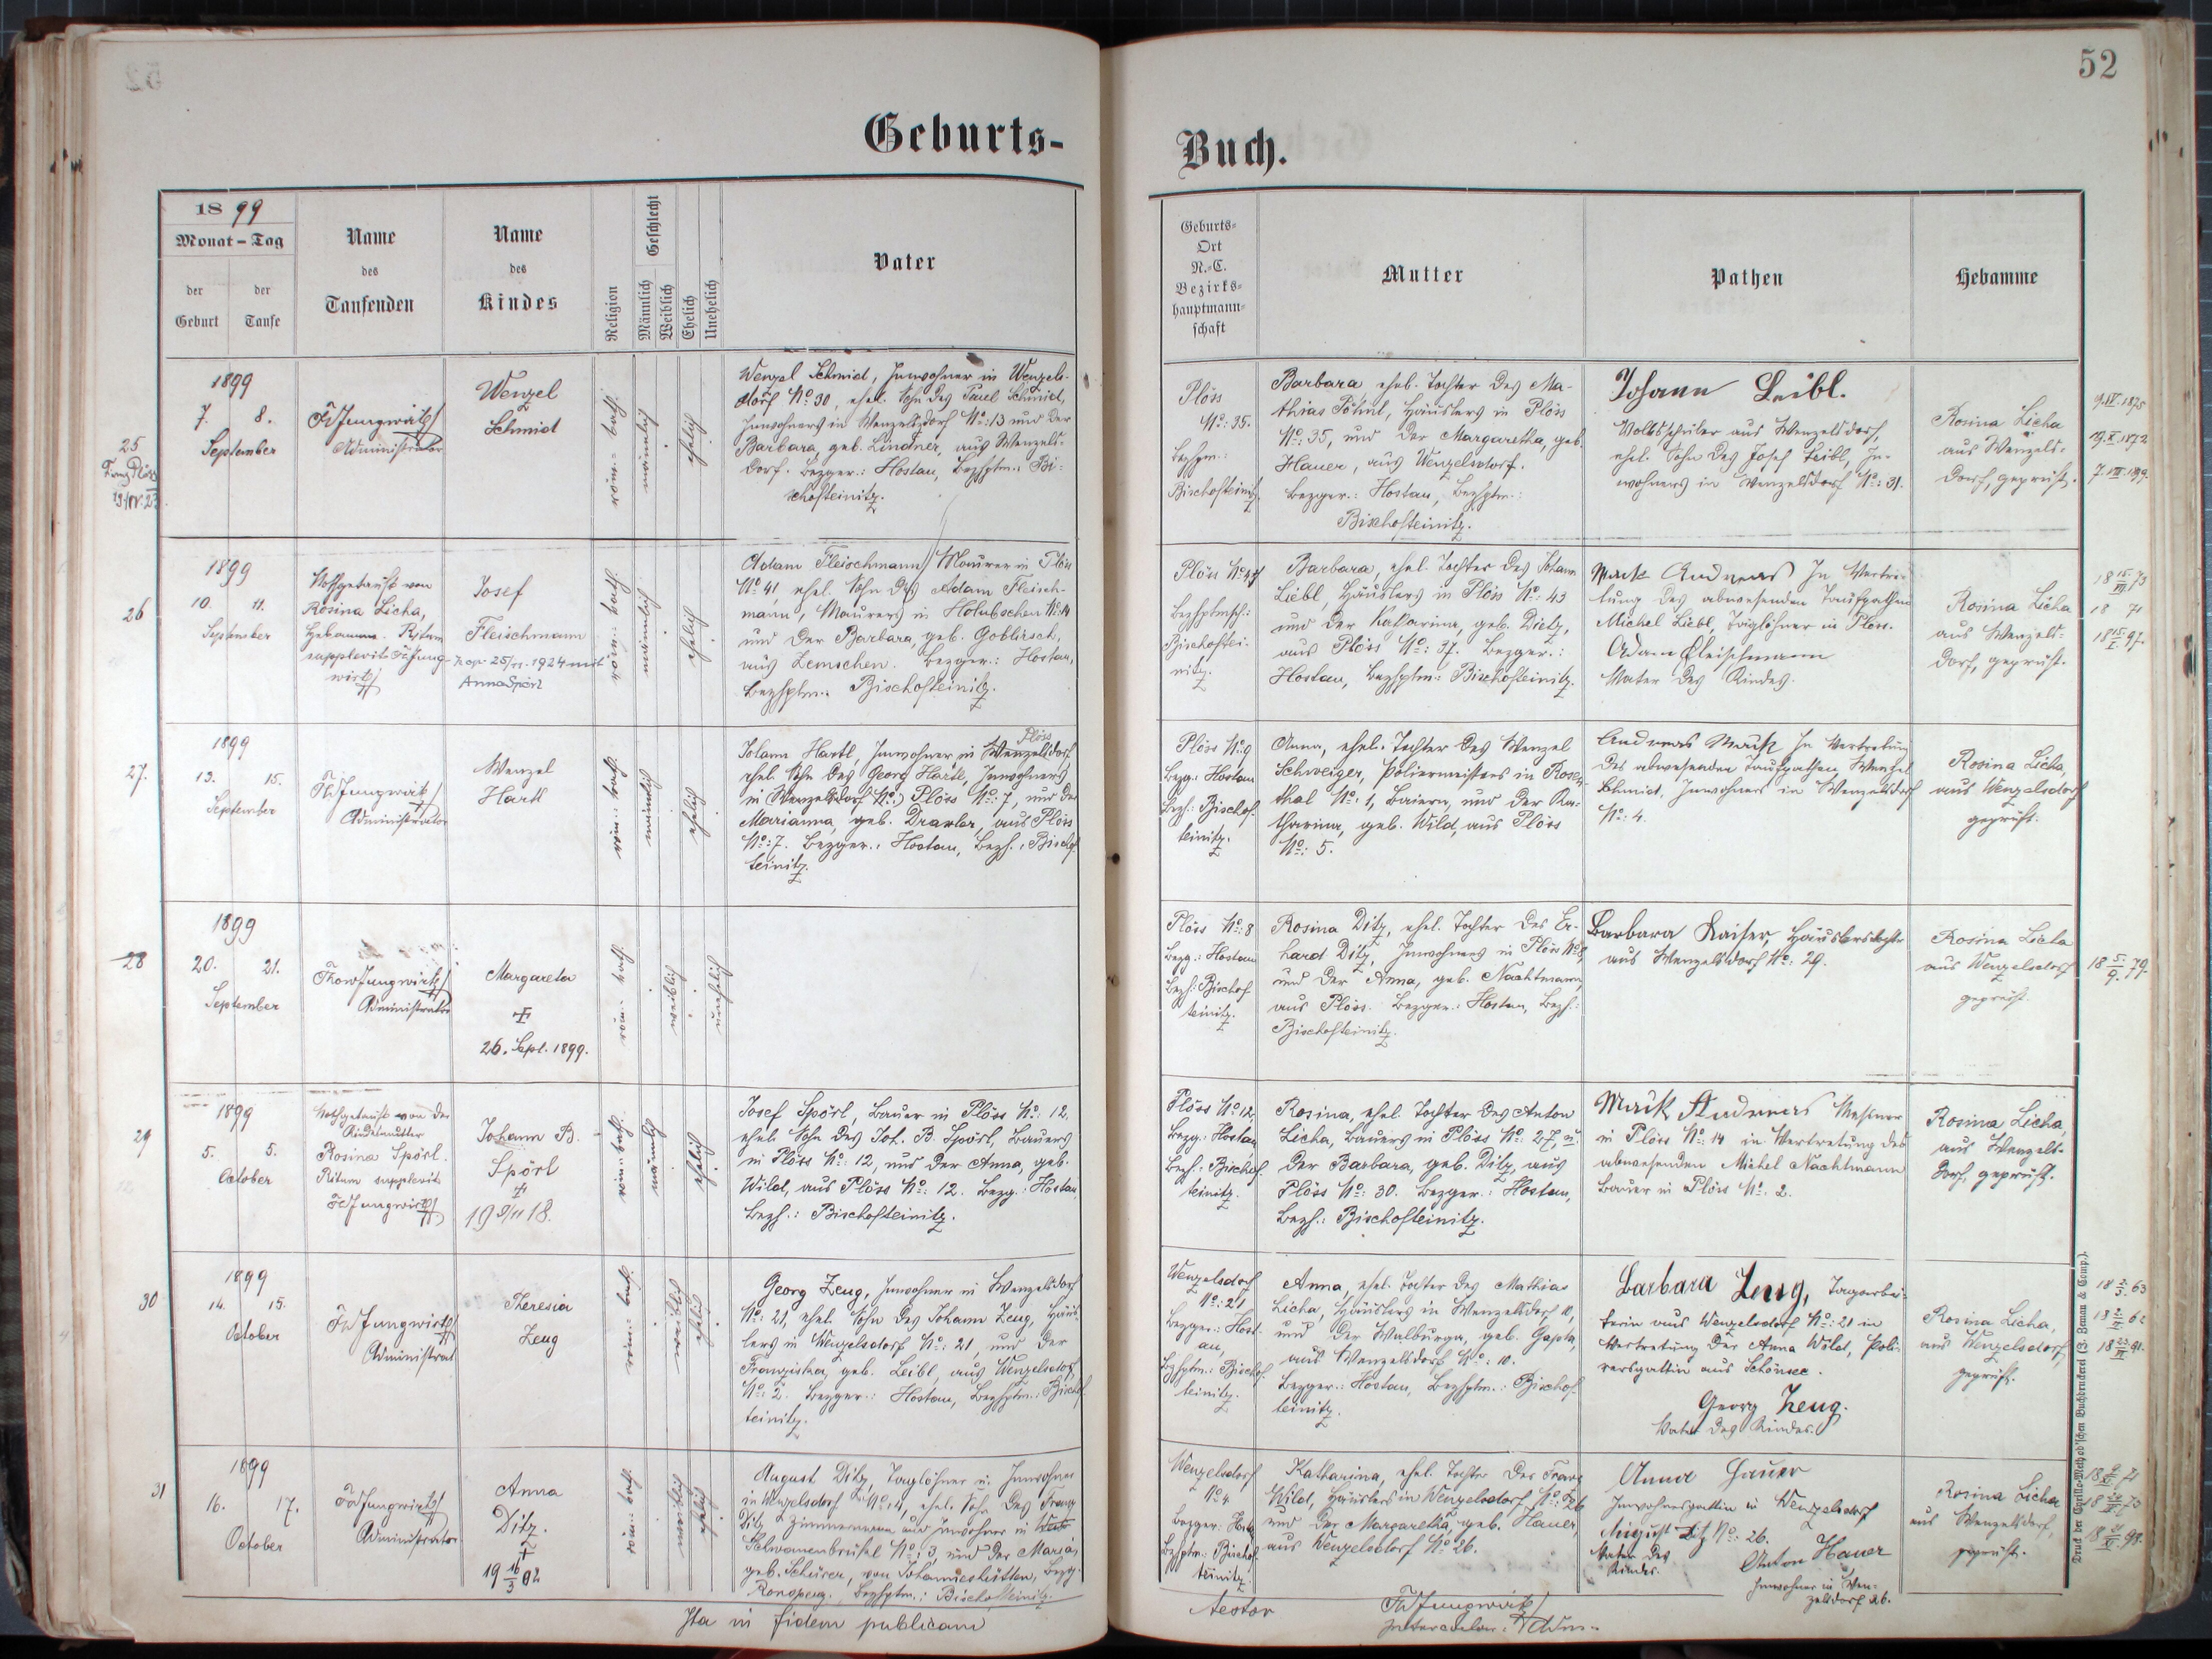 52
Geburts-
Buch.
1899
Monat - Tag
der Geburt
der Taufe
Name des Taufenden
Name des Kindes
Religion
Geschlecht
Männlich
Weiblich
Ehelich
Unehelich
Vater
Geburts-
Ort
N.-C.
Bezirks-
hauptmann-
schaft
Mutter
Pathen
Hebamme
25
1899
7. 8.
September
Administrator
Wenzel
Schmid
röm.- kath.
männlich
ehelich
Wenzel Schmid, Inwohner in Wenzels-
dorf No: 30, ehel. Sohn des Paul Schmid,
Inwohners in Wenzelsdorf No: 13 und der
Barbara, geb. Lindner, aus Wenzels-
dorf. Bezger.: Hostau, Bezhptm.: Bi-
schofteinitz.
Plöss
No: 35.
Bezhptm.:
Bischofteinitz.
Barbara ehel. Tochter des Ma-
thias Pöhnl, Häuslers in Plöss
No: 35, und der Margaretha, geb.
Hauer, aus Wenzelsdorf.
Bezger.: Hostau, Bezhptm.:
Bischofteinitz.
Johann Leibl.
aus Wenzelsdorf,
ehel. Sohn des Josef Leibl, In-
wohners in Wenzelsdorf No: 31.
Rosina Licha
aus Wenzels-
dorf, geprüft.
26
1899
10. 11.
September
Nothgetauft von
Rosina Licha,
Hebamme. Ritum
supplevit Jung-
wirth
Josef
Fleischmann
kop. 25/11. 1924 mit
Anna Spörl
röm.- kath.
männlich
ehelich
Adam Fleischmann, Maurer in Plöss
No 41, ehel. Sohn des Adam Fleisch-
mann, Maurers in Holubschen No 14
und der Barbara, geb. Goblirsch,
aus Zemschen. Bezger.: Hostau,
Bezhptm.: Bischofteinitz.
Plöss No 41
Bischoftei-
nitz.
Barbara, ehel. Tochter des Johann
Liebl, Häuslers in Plöss No: 43
und der Katharina, geb. Dietz,
aus Plöss No: 37. Bezger.:
Hostau, Bezhptm: Bischofteinitz.
Mack Andreas In Vertre-
tung des abwesenden Taufpathen
Michel Liebl, Taglöhner in Plöss.
Adam Fleischmann
Vater des Kindes.
Rosina Licha
aus Wenzels-
dorf, geprüft.
27.
1899
13. 15.
September
Jungwirth
Administrator
Wenzel
Hartl
röm.- kath.
männlich
ehelich
Plöss
Johann Hartl, Inwohner in Wenzelsdorf,
ehel. Sohn des Georg Hartl, Inwohners
in Wenzelsdorf No:) Plöss No: 7, und der
Marianna, geb. Draxler, aus Plöss
No: 7. Bezger.: Hostau, Bezh.: Bischof-
teinitz.
Plöss No: 9
Bezg: Hostau
Bezh: Bischof-
teinitz.
Anna, ehel. Tochter des Wenzel
Schweiger, Poliermeisters in Rosen-
thal No: 1, Baiern, und der Ka-
tharina, geb. Wild, aus Plöss
No: 5.
Andreas Mack In Vertretung
des abwesenden Taufpathen Wenzel
Schmid, Inwohners in Wenzelsdorf
No: 4.
Rosina Licha,
aus Wenzelsdorf
geprüft.
28
1899
20. 21.
September
Jungwirth
Administrator
Margareta
26. Sept. 1899.
röm.- kath.
weiblich
unehelich
Plöss No: 8
Bezg.: Hostau
Bezh: Bischof-
teinitz.
Rosina Ditz, ehel. Tochter des Er-
hard Ditz, Inwohners in Plöss No 8,
und der Anna, geb. Nachtmann,
aus Plöss. Bezger.: Hostau, Bezh.:
Bischofteinitz.
Barbara Kaiser, Häuslerstochter
aus Wenzelsdorf No: 29.
Rosina Licha
aus Wenzelsdorf
geprüft.
29
1899
5. 5.
October
Nothgetauft von der
Kindesmutter
Rosina Spörl.
Ritum supplevit
Jungwirth
Johann B.
Spörl
19 9/11 18.
röm.- kath.
männlich
ehelich
Josef Spörl, Bauer in Plöss No: 12,
ehel. Sohn des Joh. B. Spörl, Bauers
in Plöss No: 12, und der Anna, geb.
Wild, aus Plöss No: 12. Bezg.: Hostau,
Bezh.: Bischofteinitz.
Plöss No 12
Bezg.: Hostau,
Bezh.: Bischof-
teinitz.
Rosina, ehel. Tochter des Anton
Licha, Bauers in Plöss No: 27, u.
der Barbara, geb. Ditz, aus
Plöss No: 30. Bezger.: Hostau,
Bezh.: Bischofteinitz.
Mack Andreas Messner
in Plöss No: 14 in Vertretung des
abwesenden Michel Nachtmann
Bauer in Plöss No. 2.
Rosina Licha,
aus Wenzels-
dorf, geprüft.
30
1899
14. 15.
October
Jungwirth
Administrat
Theresia
Zeug
röm.- kath.
weiblich
ehelich
Georg Zeug, Inwohner in Wenzelsdorf
No: 21, ehel. Sohn des Johann Zeug, Häus-
lers in Wenzelsdorf No: 21, und der
Franziska, geb. Leibl, aus Wenzelsdorf,
No: 2. Bezger.: Hostau, Bezhptm.: Bischof-
teinitz.
Wenzelsdorf
No: 21
Bezger.: Host-
au,
Bezhptm.: Bischof-
teinitz.
Anna, ehel. Tochter des Mathias
Licha, Häuslers in Wenzelsdorf 10,
und der Walburga, geb.
aus Wenzelsdorf No: 10.
Bezger.: Hostau, Bezhptm.: Bischof-
teinitz.
Barbara Zeug, Tagarbei-
terin aus Wenzelsdorf No: 21 in
Vertretung der Anna Wild, Poli-
rersgattin aus Schönsee.
Georg Zeug.
Vater des Kindes.
Rosina Licha,
aus Wenzelsdorf,
geprüft.
31
1899
16. 17.
October
Jungwirth
Administrator
Anna
Ditz.
19 16/3 02
röm.- kath.
weiblich
ehelich
August Ditz, Taglöhner u. Inwohner
in Wenzelsdorf No: 4, ehel. Sohn des Franz
Ditz, Zimmermann und Inwohner in
Schwanenbrückel No: 3, und der Maria,
geb. Schürer, von Johanneshütten, Bezg.
Ronsperg. Bezhptm.: Bischofteinitz.
Wenzelsdorf
No 4
Bezger: Hostau
Bezhptm.: Bischof-
teinitz.
Katharina, ehel. Tochter des Franz
Wild, Häuslers in Wenzelsdorf No: 26
und der Margaretha, geb. Hauer,
aus Wenzelsdorf No 26.
Anna Hauer
Inwohnersgattin in Wenzelsdorf
No: 26.
August Ditz
Vater des
Kindes.
Anton Hauer
Inwohner in Wen-
zelsdorf 26.
Rosina Licha
aus Wenzelsdorf,
geprüft.
Ita in fidem publicam
testor
Jungwirth
Druck der Cyrillo-Method'schen Buchdruckerei (J. Zeman & Comp.).